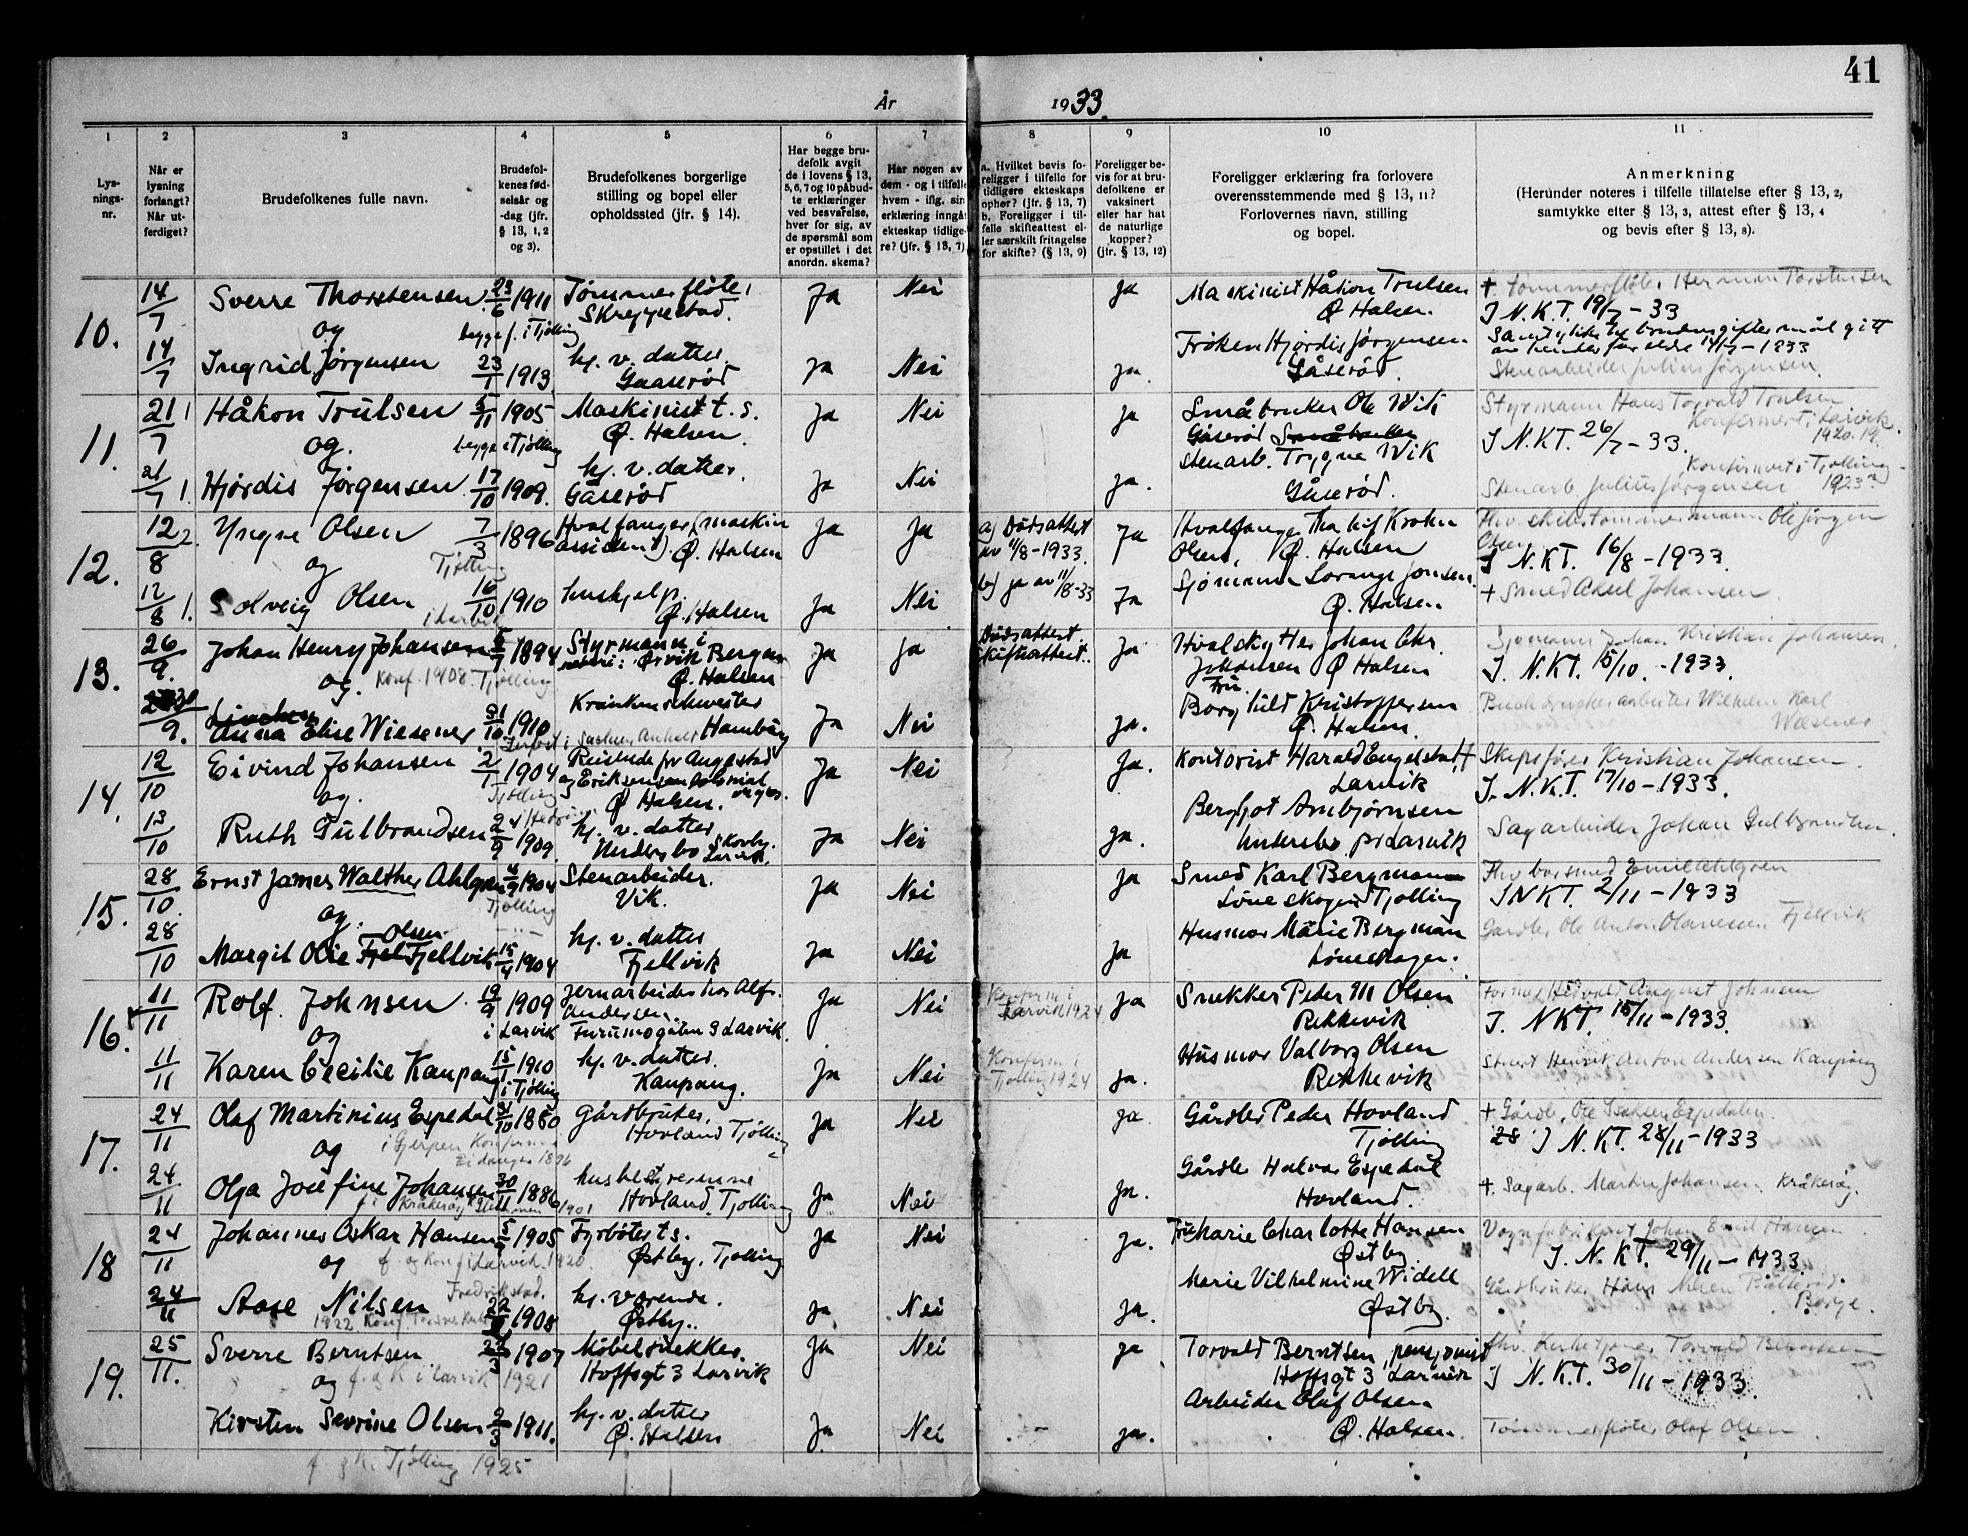 41
År 1933.
1
2
3
4
5
6
7
8
9
10
11
Lys-
nings-
nr.
Når er
lysning
forlangt?
Når ut-
ferdiget?
Brudefolkenes fulle navn.
Brudefol-
kenes fød-
selsår og
-dag (jfr.
§ 13, 1, 2
og 3).
Brudefolkenes borgerlige
stilling og bopel eller
opholdssted (jfr. § 14).
Har begge bru-
defolk avgit
de i lovens § 13,
5, 6, 7 og 10 påbud-
te erklæringer
ved besvarelse,
hver for sig, av
de spørsmål som
er opstillet i det
anordn. skema?
Har nogen av
dem - og i tilfelle
hvem - iflg. sin
erklæring inngåt
ekteskap tidlige-
re? (jfr. § 13, 7)
a. Hvilket bevis fo-
religger i tilfelle for
tidligere ekteskaps
ophør? (jfr. § 13, 7)
b. Foreligger i til-
felle skifteattest el-
ler særskilt fritagelse
for skifte? (§ 13, 9)
Foreligger be-
vis for at bru-
defolkene er
vaksinert
eller har hat
de naturlige
kopper?
(jfr. § 13, 12)
Foreligger erklæring fra forlovere
overensstemmende med § 13, 11?
Forlovernes navn, stilling
og bopel.
Anmerkning
(Herunder noteres i tilfelle tillatelse efter § 13, 2,
samtykke efter § 13, 3, attest efter § 13, 4
og bevis efter § 13, 8).
10.
14/7 Sverre Thorstensen 23/6 1911 Tømmerfløter Skreppestad. Ja Nei ja Maskinist Håkon Trulsen Ø Halsen. + Tømmerfløter Herman Torstensen
J N.K.T. 19/7-33
og begge f. i Tjølling
14/7 Ingrid Jørgensen 23/1 1913 hj. v. datter Gaaserød ja Nei ja. Frøken Hjørdis Jørgensen Gåserød.
Stenarbeider Julius Jørgensen.
11.
21/7 Håkon Trulsen 5/11 1905 Maskinist t.s. Ø. Halsen. Ja Nei ja Småbruker Ole Wik Gåserød Styrmann Hans Torvald Trulsen
Konfirmert i Larvik
J N.KT. 26/7-33.
og. begge i Tjølling
21/7 Hjørdis Jørgensen 17/10 1909. hj. v. datter Gåserød Ja Nei ja. Stenarb. Trygve Wik Gåserød. Konfirmert i Tjølling 1923
Stenarb Julius Jørgensen
12.
12/8 Yngve Olsen 7/3 1896 Hvalfanger (maskin assistent). Ø. Halsen Ja Ja a) Dødsattest av 11/8-1933. Ja Hvalfanger Olsen, Ø. Halsen Fhv. skibstømmermann Ole Jørgen Olsen
J N.KT. 16/8-1933.
og Tjølling
12/8 Solveig Olsen 16/10 1910 hushjelp. Ø. Halsen Ja Nei b) ja av 11/8-33 Ja Sjømann Jonsen. Ø. Halsen + Smed Aksel Johansen
i Larvik
13.
26/9. Johan Henry Johansen 5/7 1894 Styrmann i Ø. Halsen Ja Ja Dødsattest Skifteattest. Ja Johan Chr. Johansen Ø Halsen Sjømann Johan Kristian Johansen
J. N.KT. 15/10.-1933.
og. Konf. 1908. Tjølling
9. Anna Elise Wiesener 31/10 1910 Krankenschwester Hamburg Ja Nei ja. Fru Borghild Kristoffersen Ø. Halsen Wilhelm Karl Wiesener
14.
12/10 Eivind Johansen 2/1 1904 Reisende for Ø Halsen. Ja Nei Ja. Kontorist Harald Engelstad, Larvik Skipsfører Kristian Johansen.
J. N.K.T. 17/10-1933.
og. Tjølling
13/10 Ruth Gulbrandsen 24/9 1909. hj. v. datter Ja Nei ja. Bergljot Arnbjørnsen Sagarbeider Johan Gulbrandsen.
15.
28/10. Ernst James Walther Ahlgren 4/9 1904 Stenarbeider. Vik. Ja Nei ja Smed Karl Bergmann Tjølling Emil Ahlgren
J N KT. 2/11-1933
og. Tjølling
28/10 Margit Olie Olsen Fjellvik 15/4 1904 hj. v. datter Fjellvik Ja Nei ja Husmor Marie Bergman Gårdbr Ole Anton Olavesen Fjellvik
16.
11/11 Rolf. Johnsen. 19/9 1909 i Larvik Jernarbeider hos Alf. Andersen Furumogaten 3 Larvik. Ja Nei Konfirm i Larvik 1924 ja Snekker Peder M Olsen Rekkevik August Johnsen
J. N.KT. 15/11-1933.
og
11/11 Karen Cecilie Kaupang 15/1 1910 i Tjølling hj. v. datter. Kaupang. Ja Nei Konfirm i Tjølling 1924 ja. Husmor Valborg Olsen Rekkevik Henrik Anton Andersen Kaupang
17.
24/11 Olaf Martinius Espedal 31/10 1880 Gårdbruker, Hovland Tjølling Ja Nei ja. Gårdbr Peder Hovland Tjølling + Gårdb. Ole Isaksen Espedalen.
28 J N.KT. 28/11-1933
og i Gjerpen Konfirm i Eidanger 1896
24/11 Olga Josefine Johansen 30/11 1886 husbestyrerinne Hovland. Tjølling Ja Nei ja. Gårdbr Halvor Espedal Hovland. + Sagarb. Martin Johansen Kråkerøy.
18
24/11 Johannes Oskar Hansen 5/9 1905 Fyrbøter t.s. Østby, Tjølling Ja Nei Ja. Fru Marie Charlotte Hansen Østby Vognfabrikant Johan Emil Hansen
J. N. KT. 29/11-1933.
og f. og konf i Larvik 1920.
24/11 Aase Nilsen 1908 hj. værende. Østby. ja Nei ja. Marie Vilhelmine Widell Østby. Gårdbruker Hans Borge.
Fredrikstad.
19.
25/11. Sverre Berntsen 1907 Møbelsnekker. Hoffsgt 3 Larvik Ja Nei ja Torvald Berntsen, pensjonist Hoffsgt 3 Larvik fhv. Kirketjener Torvald Berntsen
J N.K.T. 30/11-1933.
og f. g k i Larvik 1921
Kirsten Sevrine Olsen 2/3 1911. hj. v. datter Ø. Halsen Ja Nei - ja. Arbeider Olaf Olsen Ø. Halsen. Tømmerfløter Olaf Olsen
f. g k. Tjølling 1925